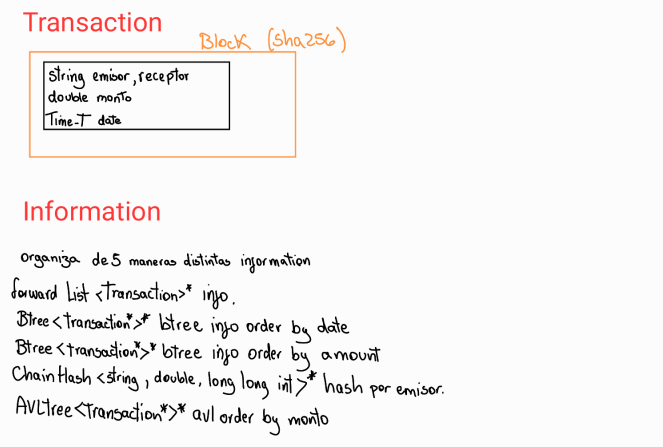 Transaction
Block (sha256)
string emisor, receptor
double monto
Time-T date
Information
organiza de 5 maneras distintas information
forward List <Transaction>* info.
Btree<transaction*>* btree info order by date
Btree<transaction*>* btree info order by amount
Chain Hash <string, double, long long int>* hash por emisor.
AVLtree<transaction*>* avl order by monto